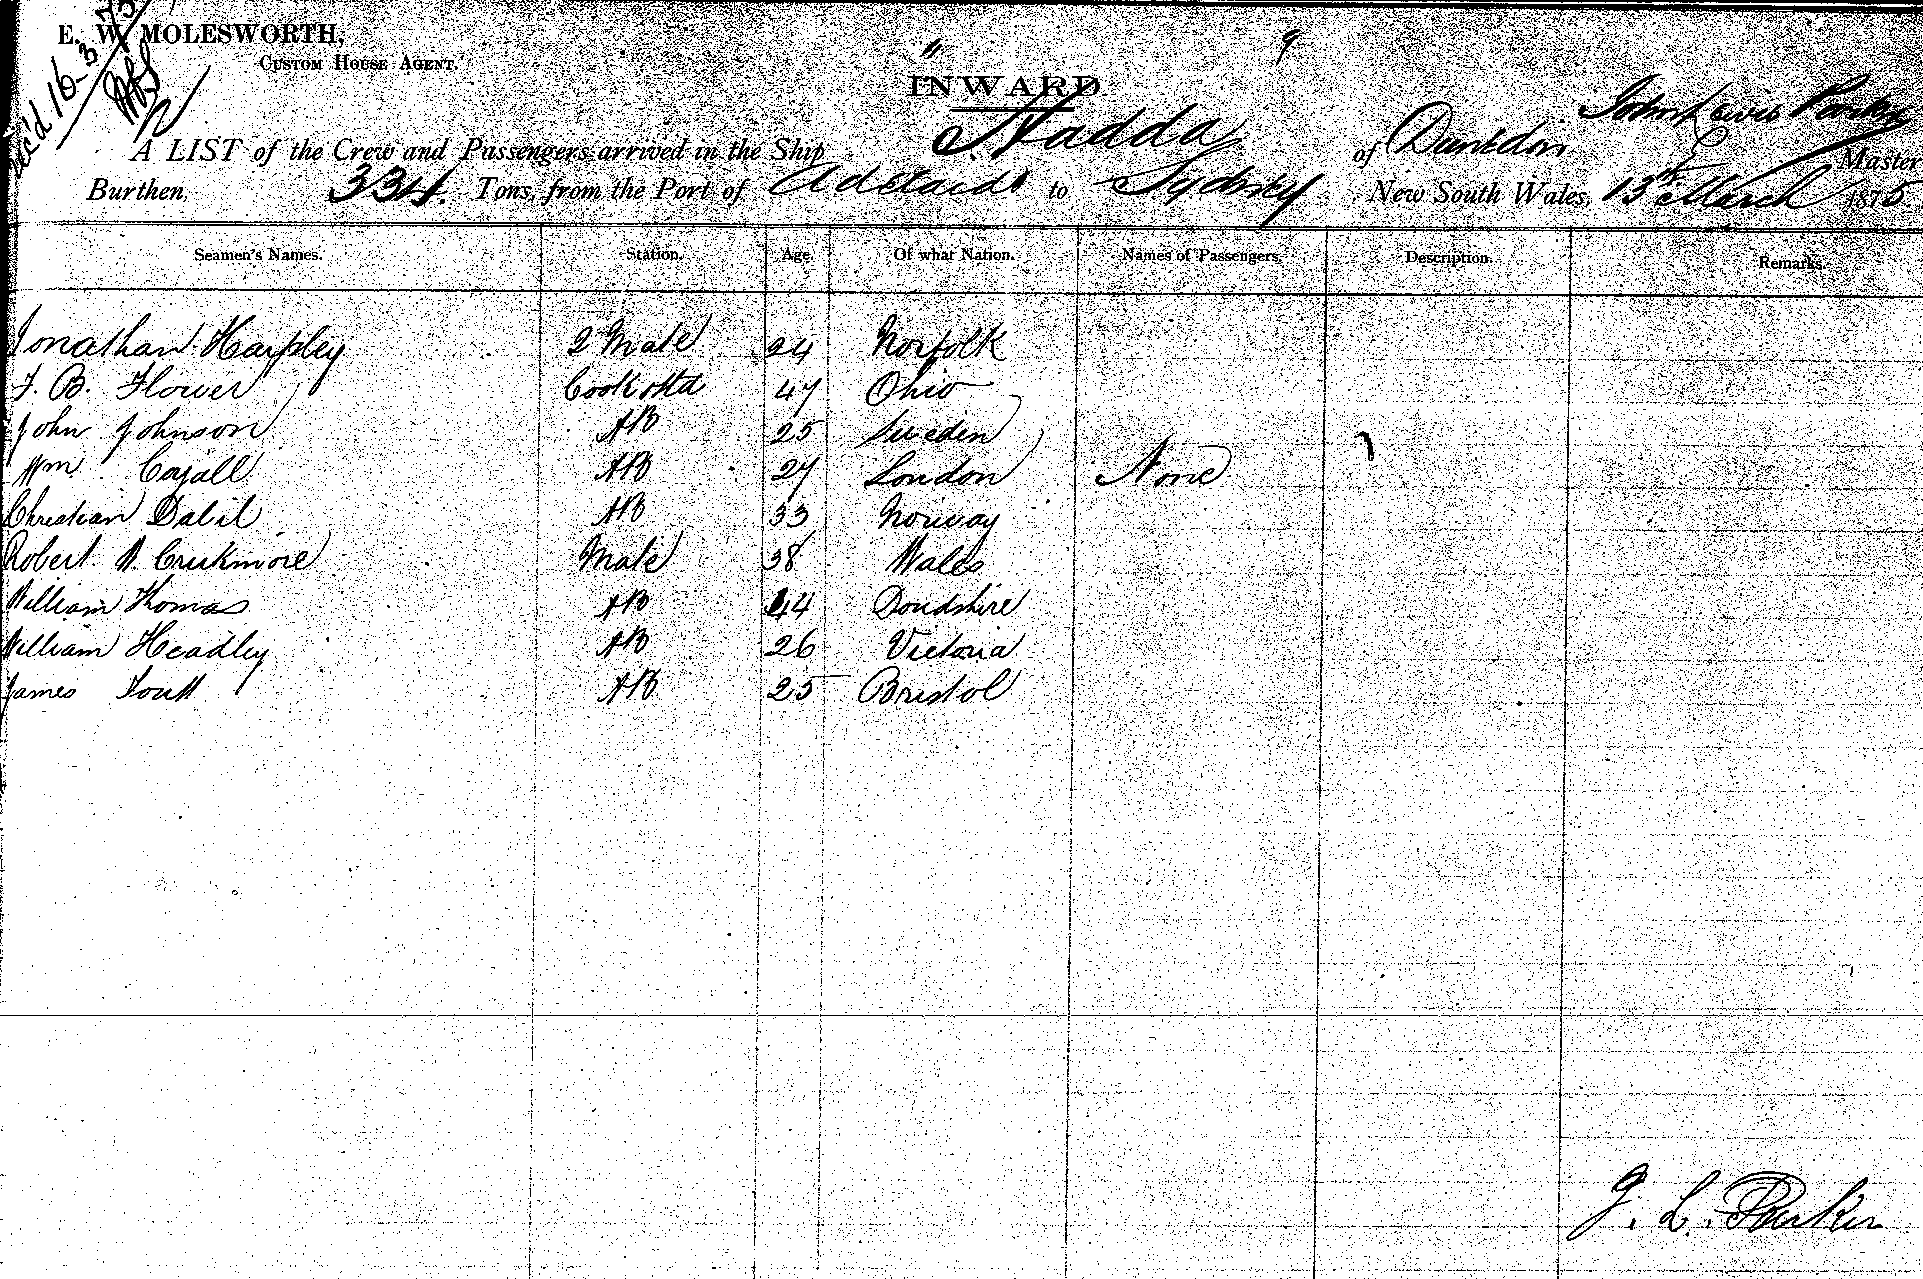 E. W. MOLESWORTH,
CUSTOM HOUSE AGENT.
Rec'd 16-3-75
INWARD
A LIST of the Crew and Passengers arrived in the Ship Hadda of Dunedin John Lewis Parker Master
Burthen, 334. Tons, from the Port of Adelaide to Sydney New South Wales, 13th March 1875
Seamen's Names. Station. Age Of what Nation. Names of Passengers. Description. Remarks.
Jonathan Harpley 2 Mate 24 Norfolk
F. B. Flower Cook & Std 47 Ohio
John Johnson AB 25 Sweden
Wm Cajall AB 27 London None
Christian Dalil AB 33 Norway
Robert W. Cruikmore Mate 38 Wales
William Thomas AB 44
William Headley AB 26 Victoria
James AB 25 Bristol
J. L. Parker